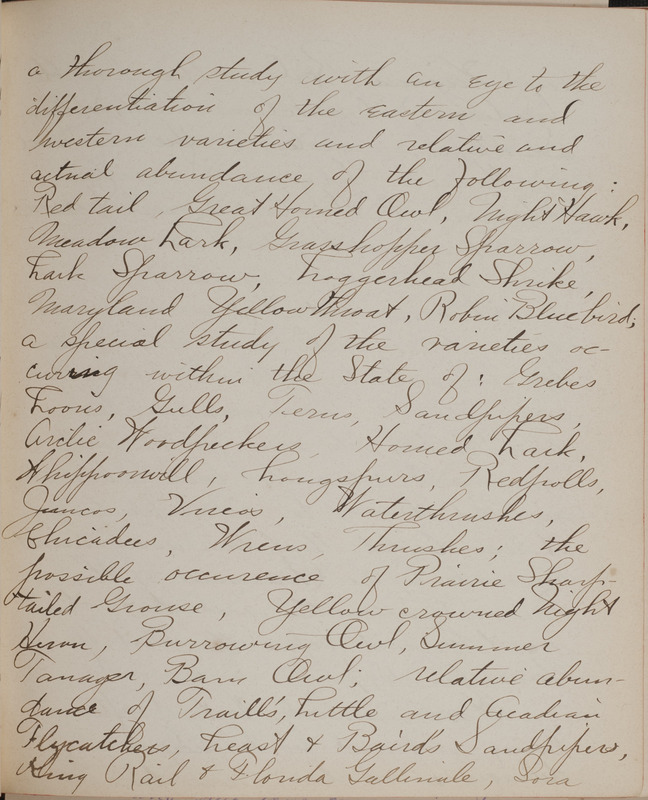 a thorough study with an eye to the
differentiation of the eastern and
western varieties and relative and
actual abundance of the following:
Red tail, Great Horned Owl, Night Hawk,
Meadow Lark, Grasshopper Sparrow,
Lark Sparrow, Loggerhead Shrike,
Maryland Yellow Throat, Robin Bluebird;
a special study of the varieties oc-
curing within the State of: Grebes
Loons, Gulls, Terns, Sandpipers,
Arctic Woodpeckers, Horned Lark,
Whippoorwill, Longspurs, Redpolls,
Juncos, Vireos, Waterthrushes,
Chicadees, Wrens, Thrushes; the
possible occurence of Prairie Sharp-
tailed Grouse, Yellow crowned Night
Heron, Burrowing Owl, Summer
Tanager, Barn Owl; relative abun-
dance of Traill's, Little and Acadian
Flycatchers, Least & Baird's Sandpipers,
King Rail & Florida Gallinule, Sora